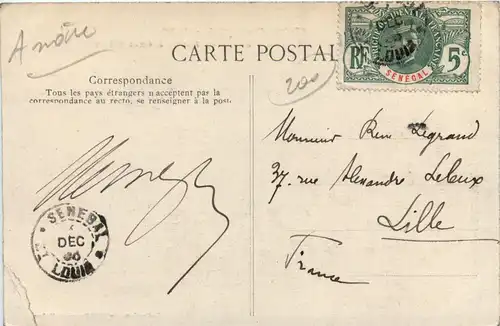 CARTE POSTAL
200
RF
5c
SENEGAL
LOUIS
Correspondance
Tous les pays étrangers n'acceptent par la
correspondance au recto, se renseigner à la post.
Monsieur René Legrand
37. rue Alexandre Leleux
Lille
France
SENEGAL
DEC
ST LOUIS